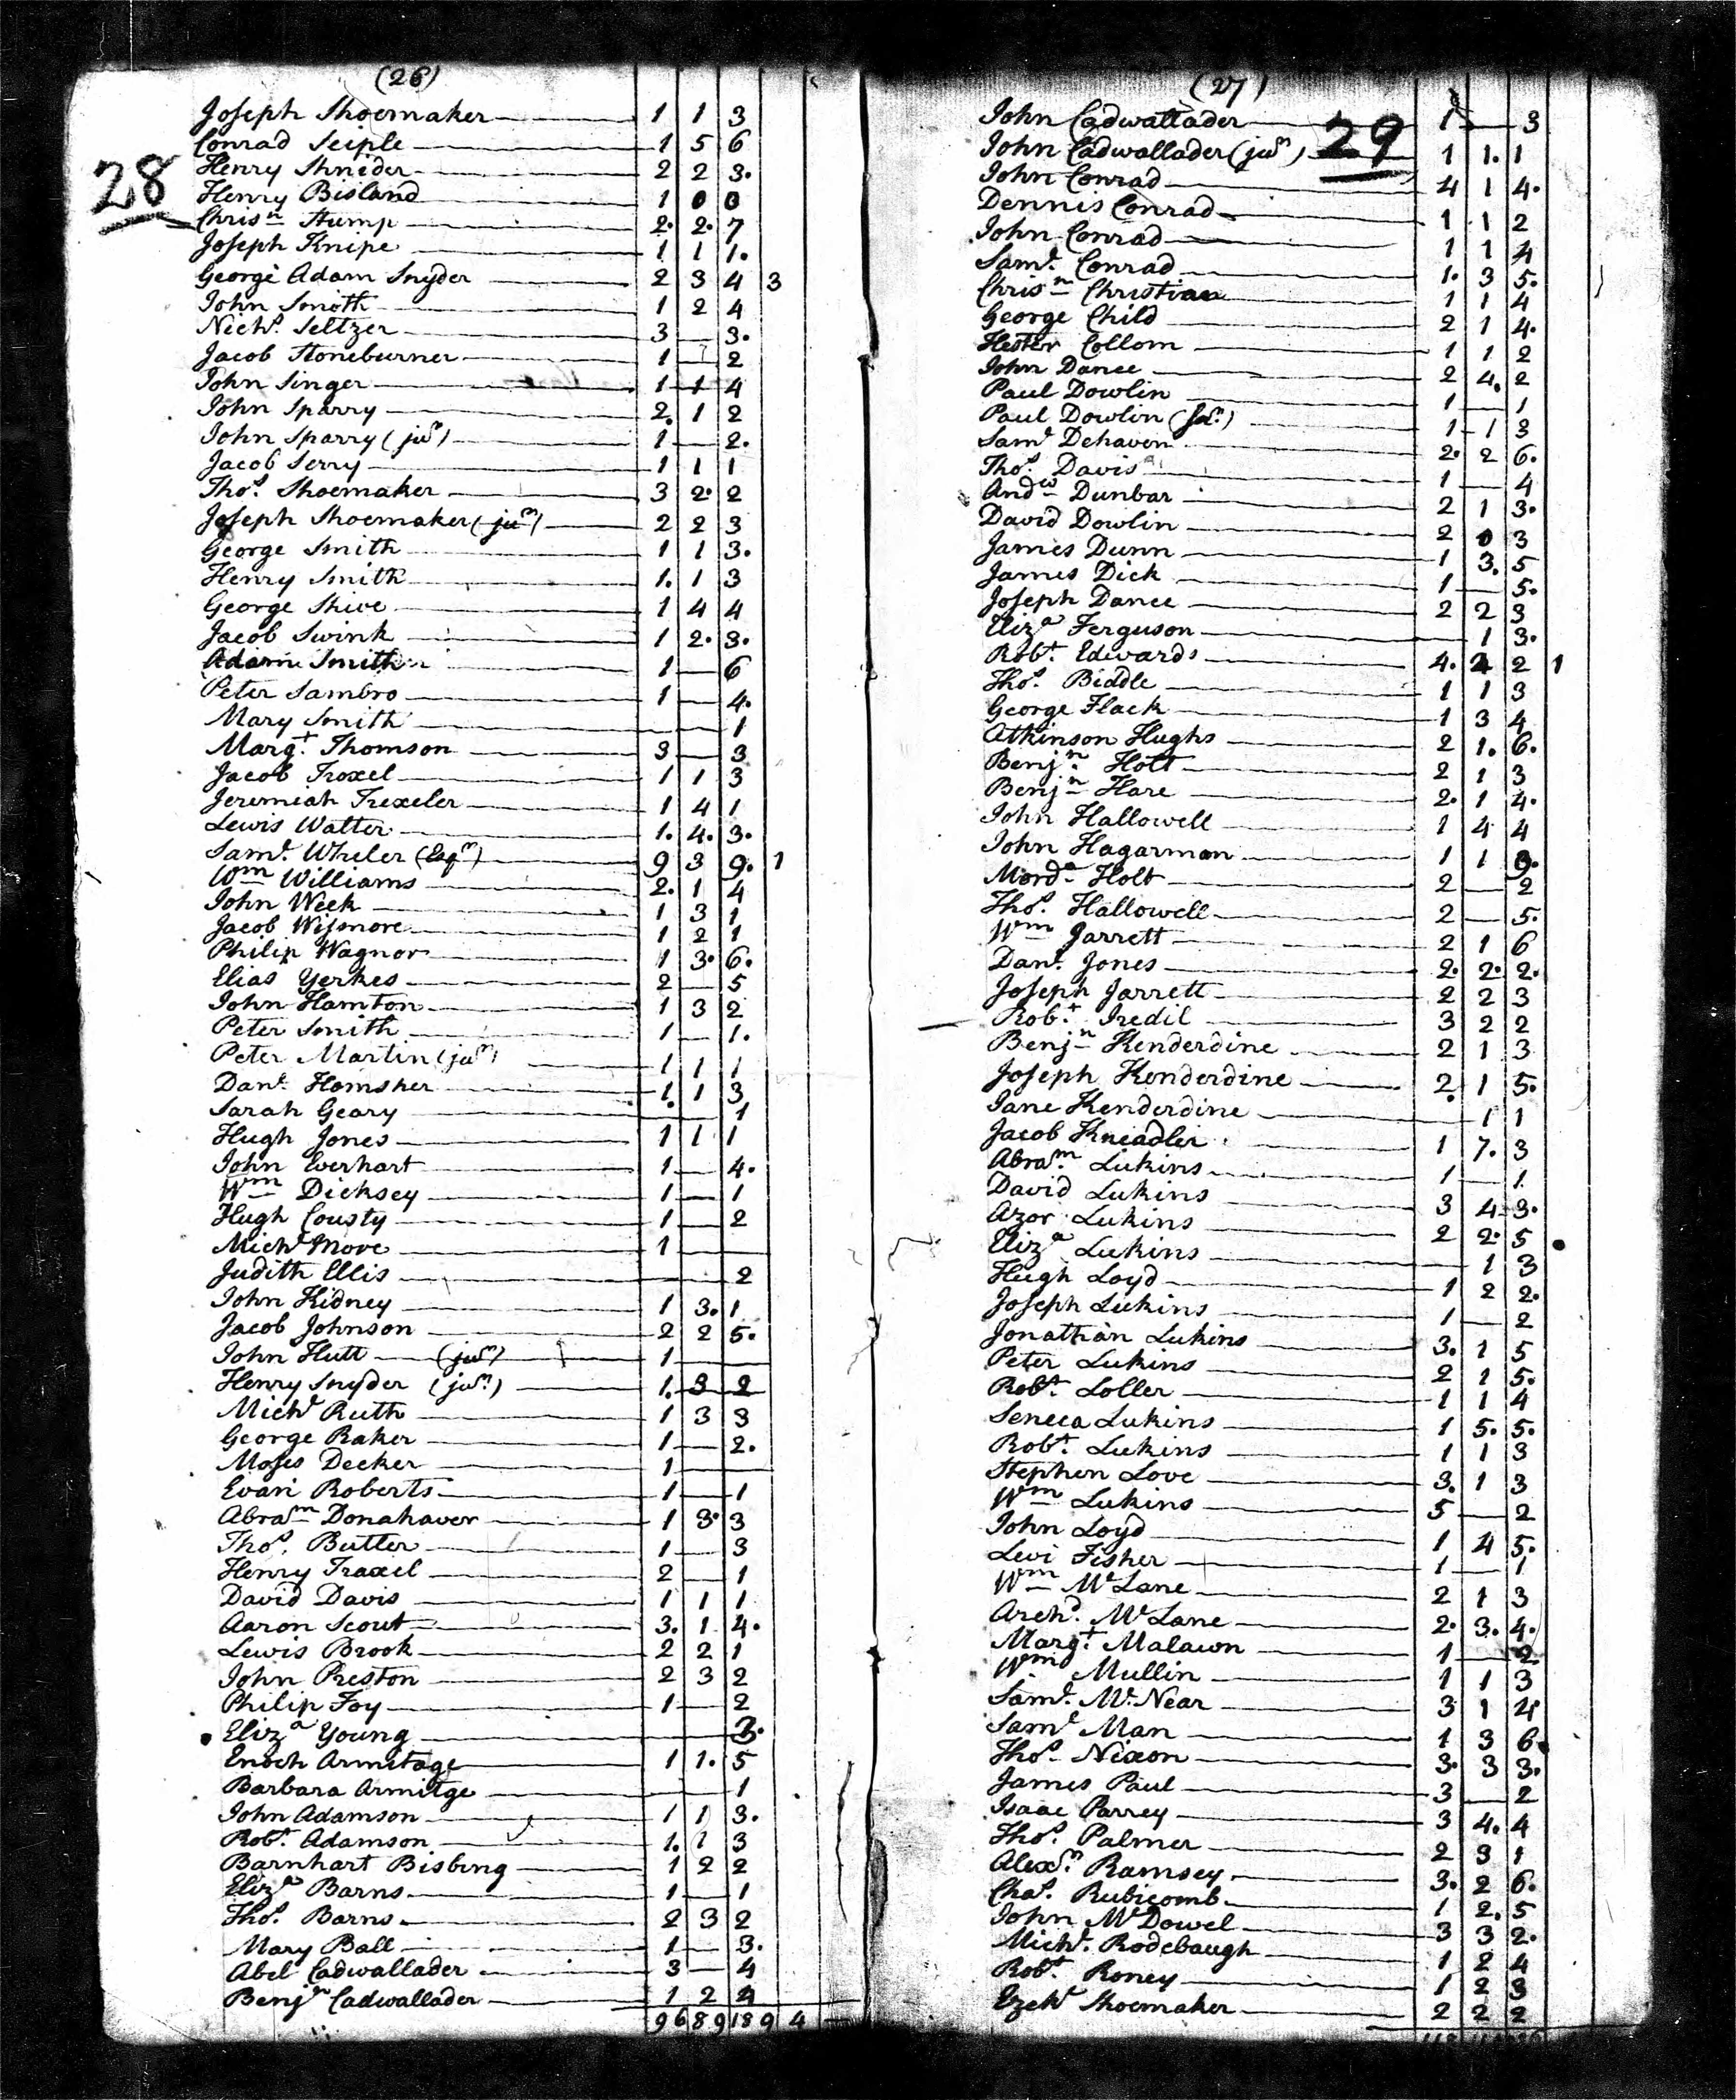 (26)
28
Joseph Shoemaker 1 1 3
Conrad Seiple 1 5 6
Henry Shnider 2 2 3.
Henry Bisland 1 0 0
Chrisn Stump 2. 2. 7
Joseph Knipe 1 1 1.
George Adam Snyder 2 3 4 3
John Smith 1 2 4
Nichs Seltzer 3 — 3.
Jacob Stoneburner 1 — 2
John Singer 1 1 4
John Sparry 2. 1 2
John Sparry (junr) 1 — 2.
Jacob Serry 1 1 1
Thos. Shoemaker 3 2. 2
Joseph Shoemaker (junr) 2 2 3
George Smith 1 1 3.
Henry Smith 1. 1 3
George Shive 1 4 4
Jacob Swink 1 2. 3.
Adam Smith 1 — 6
Peter Sambro 1 — 4.
Mary Smith — — 1
Margt. Thomson 3 — 3
Jacob Troxel 1 1 3
Jeremiah Trexeler 1 4 1
Lewis Walter 1. 4. 3.
Saml. Wheler (Esqr) 9 3 9. 1
Wm Williams 2. 1 4
John Week 1 3 1
Jacob Wismore 1 2 1
Philip Wagnor 1 3. 6.
Elias Yerkes 2 — 5
John Hamton 1 3 2
Peter Smith 1 — 1.
Peter Martin (junr) 1 1 1
Danl. Homsher 1. 1 3
Sarah Geary — — 1
Hugh Jones 1 1 1
John Everhart 1 — 4.
Wm Dicksey 1 — 1
Hugh Cousty 1 — 2
Michl Move 1 — —
Judith Ellis — — 2
John Kidney 1 3. 1
Jacob Johnson 2 2 5.
John Hutt (junr) 1 — —
Henry Snyder (junr) 1. 3 2
Michl Ruth 1 3 3
George Raker 1 — 2.
Moses Decker 1 — —
Evan Roberts 1 — 1
Abram Donahaver 1 3. 3
Thos. Butler 1 — 3
Henry Traxel 2 — 1
David Davis 1 1 1
Aaron Scout 3. 1 4.
Lewis Brook 2 2 1
John Preston 2 3 2
Philip Foy 1 — 2
Eliza Young — — 3.
Enoch Armitage 1 1. 5
Barbara Armitge — — 1
John Adamson 1 1 3.
Robt. Adamson 1. 1 3
Barnhart Bisbing 1 2 2
Eliza Barns 1 — 1
Thos. Barns 2 3 2
Mary Ball 1 — 3.
Abel Cadwallader 3 — 4
Benjn Cadwallader 1 2 4
96 89 189 4
(27)
29
John Cadwallader 1 — 3
John Cadwallader (junr) 1 1. 1
John Conrad 4 1 4.
Dennis Conrad 1 1 2
John Conrad 1 1 4
Saml. Conrad 1. 3 5.
Chrisn Christian 1 1 4
George Child 2 1 4.
Hester Collom 1 1 2
John Dance 2 4. 2
Paul Dowlin 1 — 1
Paul Dowlin (Jnr.) 1 1 3
Saml Dehaven 2. 2 6.
Thos. Davis 1 — 4
Andw Dunbar 2 1 3.
David Dowlin 2 0 3
James Dunn 1 3. 5
James Dick 1 — 5.
Joseph Dance 2 2 3
Eliza Ferguson — 1 3.
Robt. Edwards 4. 2 2 1
Thos. Biddle 1 1 3
George Flack 1 3 4
Atkinson Hughs 2 1. 6.
Benjn. Holt 2 1 3
Benjn Hare 2. 1 4.
John Hallowell 1 4 4
John Hagarman 1 1 3.
Morda Holt 2 — 2
Thos. Hallowell 2 — 5.
Wm Jarrett 2 1 6
Danl. Jones 2. 2. 2.
Joseph Jarrett 2 2 3
Robt. Iredil 3 2 2
Benjn Kenderdine 2 1 3
Joseph Kenderdine 2. 1 5.
Jane Kenderdine — 1 1
Jacob Kneadler 1 7. 3
Abram. Lukins 1 — 1
David Lukins 3 4 3.
Azor Lukins 2 2. 5
Eliza Lukins — 1 3
Hugh Loyd 1 2 2.
Joseph Lukins 1 — 2
Jonathan Lukins 3. 1 5
Peter Lukins 2 1 5.
Robt. Loller 1 1 4
Seneca Lukins 1 5. 5.
Robt. Lukins 1 1 3
Stephen Love 3. 1 3
Wm Lukins 5 — 2
John Loyd 1 4 5.
Levi Fisher 1 — 1
Wm McLane 2 1 3
Archd. McLane 2. 3. 4.
Margt. Malawn 1 — 2
Wm Mullin 1 1 3
Saml. McNear 3 1 4
Saml Man 1 3 6.
Thos. Nixon 3. 3 3.
James Paul 3 — 2
Isaac Parrey 3 4. 4
Thos. Palmer 2 3 1
Alexr. Ramsey 3. 2 6.
Chas. Rubicomb 1 2. 5
John McDowel 3 3 2.
Michl. Rodebaugh 1 2 4
Robt. Roney 1 2 3
Ezekl Shoemaker 2 2 2